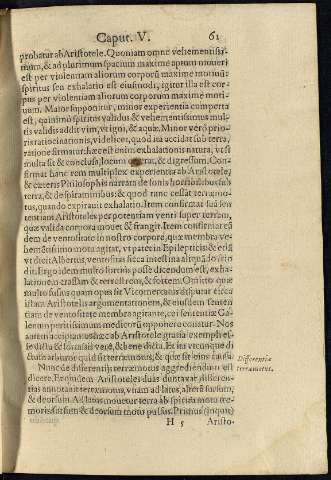 Caput. V. 61
probatur ab Aristotele. Quoniam omne vehementissi-
mum, & ad plurimum spacium maximè aptum moueri
est per violentiam aliorum corporū maximè motiuū:
spiritus seu exhalatio est eiusmodi, igitur illa est cor-
pus per violentiam aliorum corporum maximè moti-
uum. Maior supponitur, minor experientia comperta
est, quoniā spiritus validus & vehementissimus mul-
tis validis addit vim, vt igni, & aquæ. Minor verò prio-
ris ratiocinationis, videlicet, quod ita accidat sub terra,
ratione firmatur: hæc est enim exhalationis natura, vt si
multa sit & conclusa, locum & digressum. Con-
firmat hanc rem multiplex experientia ab Aristotele,
& cæteris Philosophis narrata de sonis horribilibus sub
terra, & de spiraminibus: & quod tunc cessat terræmo-
tus, quando expirauit exhalatio. Item confirmat suā sen-
tentiam Aristoteles per potentiam venti super terram,
quæ valida corpora mouet & frangit. Item confirmat eā
dem de ventositate in nostro corpore, quæ membra ve-
hementissimo motu agitat, vt patet in Epilepticis: & etiā
vt dicit Albertus, ventositas sicca intestina aliquādo scin-
dit. Ergo idem multo fortiùs posse dicendum est, exha-
lationem crassam & terrestrem, & fortem. Omitto quæ
multo fusius quam opus sit Vicomercatus disputat circa
istam Aristotelis argumentationem, & eiusdem senten
tiam de ventositate membra agitante, cei sententiæ Ga-
lenum peritissimum medicorū opponere conatur. Nos
autem accipiamus hæc ab Aristotele gratia exempli es-
se dicta & in causa verè, & benè dicta. Ex iis vtcunque di
ctum arbitror quid sit terræmotus, & quæ sit eius causa.
Nunc de differentijs terræmotus aggrediendum est
dicere. Et quidem Aristoteles duas duntaxat differen-
tias annotauit terræmotus, vnam ad latus, alterā sursum,
& deorsum. Ad latus mouetur terra ab spiritu motu tre-
moris: sursum & deorsum motu pulsus. Primus (inquit)
Differentiæ
terræmotus.
H 5 Aristo-